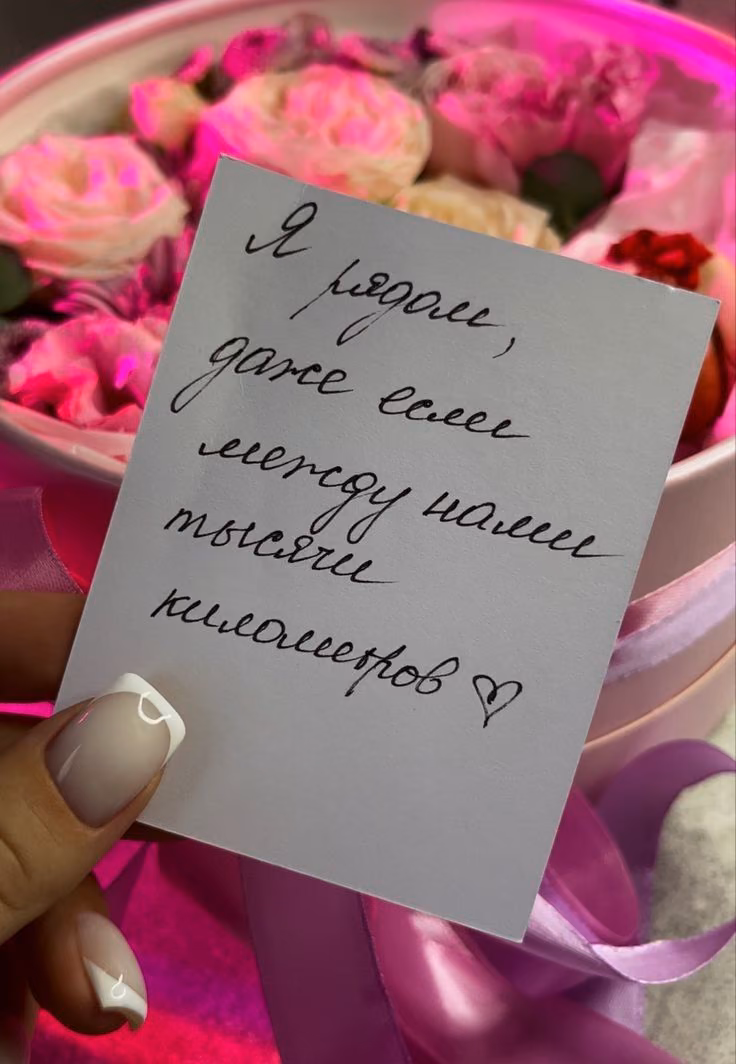 Я
рядом,
даже если
между нами
тысячи
километров ♡